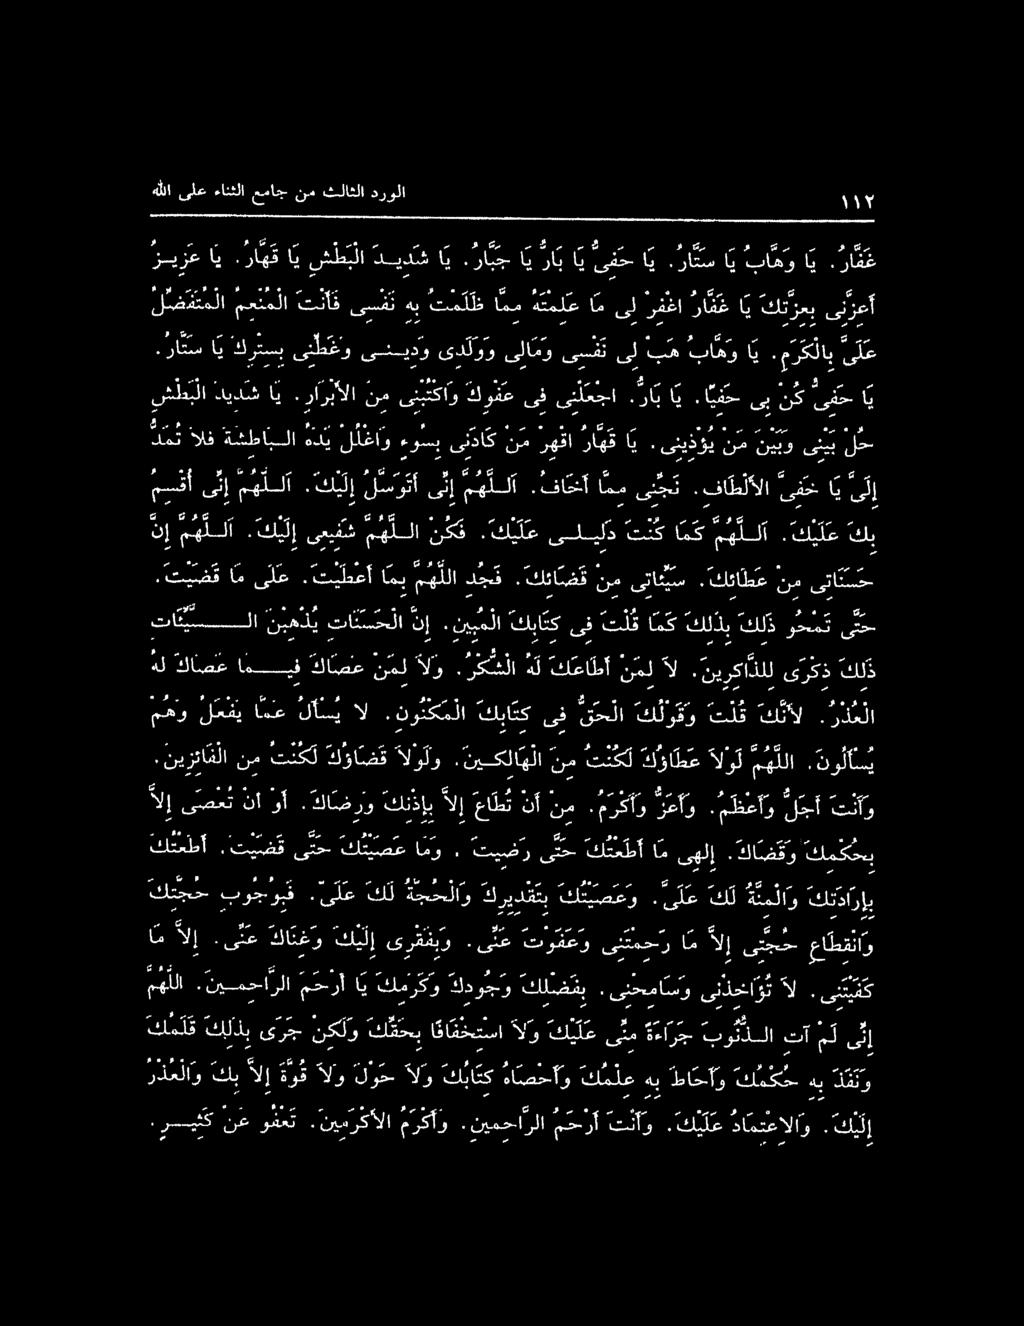 ١١٢ الورد الثالث من جامع الثناء على الله
غَفَّارُ. يَا وَهَّابُ يَا سَتَّارُ. يَا حَفِىُّ يَا بَارُّ يَا جَبَّارُ. يَا شَدِيـدَ الْبَطْشِ يَا قَهَّارُ. يَا عَزِيـزُ
أَعِزَّنِى بِعِزَّتِكَ يَا غَفَّارُ اغْفِرْ لِى مَا عَلِمْتَهُ مِمَّا ظَلَمْتُ بِهِ نَفْسِى فَأَنْتَ الْمُنْعِمُ الْمُتَفَضِّلُ
عَلَىَّ بِالْكَرَمِ. يَا وَهَّابُ هَبْ لِى نَفْسِى وَمَالِى وَوَلَدِى وَدِيـنِـى وَغَطِّنِى بِسِتْرِكَ يَا سَتَّارُ.
يَا حَفِىُّ كُنْ بِى حَفِيًّا. يَا بَارُّ. اجْعَلْنِى فِى عَفْوِكَ وَاكْتُبْنِى مِنَ الأَبْرَارِ. يَا شَدِيدَ الْبَطْشِ
حُلْ بَيْنِى وَبَيْنَ مَنْ يُؤْذِينِى. يَا قَهَّارُ اقْهِرْ مَنْ كَادَنِى بِسُوءٍ وَاغْلُلْ يَدَهُ الـبَاطِشَةَ فَلاَ تُمَدُّ
إِلَىَّ يَا خَفِىَّ الأَلْطَافِ. نَجِّنِى مِمَّا أَخَافُ. اَلـلَّهُمَّ إِنِّى أَتَوَسَّلُ إِلَيْكَ. اَلـلَّهُمَّ إِنِّى أُقْسِمُ
بِكَ عَلَيْكَ. اَلـلَّهُمَّ كَمَا كُنْتَ دَلِيـلِـى عَلَيْكَ. فَكُنْ الـلَّهُمَّ شَفِيعِى إِلَيْكَ. اَلـلَّهُمَّ إِنَّ
حَسَنَاتِى مِنْ عَطَائِكَ. سَيِّئَاتِى مِنْ قَضَائِكَ. فَجُدِ اللَّهُمَّ بِمَا أَعْطَيْتَ. عَلَى مَا قَضَيْتَ.
حَتَّى تَمْحُوَ ذَلِكَ بِذَلِكَ كَمَا قُلْتَ فِى كِتَابِكَ الْمُبِينِ. إِنَّ الْحَسَنَاتِ يُذْهِبْنَ الـــسَّيِّئَاتِ
ذَلِكَ ذِكْرَى لِلذَّاكِرِينَ. لاَ لِمَنْ أَطَاعَكَ لَهُ الشُّكْرُ. وَلاَ لِمَنْ عَصَاكَ فِيـــمَا عَصَاكَ لَهُ
الْعُذْرُ. لأَنَّكَ قُلْتَ وَقَوْلُكَ الْحَقُّ فِى كِتَابِكَ الْمَكْنُونِ. لاَ يُسْأَلُ عَمَّا يَفْعَلُ وَهُمْ
يُسْأَلُونَ. اللَّهُمَّ لَوْلاَ عَطَاؤُكَ لَكُنْتُ مِنَ الْهَالِكـينَ. وَلَوْلاَ قَضَاؤُكَ لَكُنْتُ مِنَ الْفَائِزِينَ.
وَأَنْتَ أَجَلُّ وَأَعْظَمُ. وَأَعَزُّ وَأَكْرَمُ. مِنْ أَنْ تُطَاعَ إِلاَّ بِإِذْنِكَ وَرِضَاكَ. أَوْ أَنْ تُعْصَى إِلاَّ
بِحُكْمِكَ وَقَضَاكَ. إِلَهِى مَا أَطَعْتُكَ حَتَّى رَضِيتَ. وَمَا عَصَيْتُكَ حَتَّى قَضَيْتَ. أَطَعْتُكَ
بِإِرَادَتِكَ وَالْمِنَّةُ لَكَ عَلَىَّ. وَعَصَيْتُكَ بِتَقْدِيرِكَ وَالْحُجَّةُ لَكَ عَلَىَّ. فَبِوُجُوبِ حُجَّتِكَ
وَانْقِطَاعِ حُجَّتِى إِلاَّ مَا رَحِمْتَنِى وَعَفَوْتَ عَنِّى. وَبِفَقْرِى إِلَيْكَ وَغِنَاكَ عَنِّى. إِلاَّ مَا
كَفَيْتَنِى. لاَ تُؤَاخِذْنِى وَسَامِحْنِى. بِفَضْلِكَ وَجُودِكَ وَكَرَمِكَ يَا أَرْحَمَ الرَّاحِمـينَ. اللَّهُمَّ
إِنِّى لَمْ آتِ الـذُّنُوبَ جَرَاءَةً مِنِّى عَلَيْكَ وَلاَ اسْتِخْفَافًا بِحَقِّكَ وَلَكِنْ جَرَى بِذَلِكَ قَلَمُكَ
وَنَفَذَ بِهِ حُكْمُكَ وَأَحَاطَ بِهِ عِلْمُكَ وَأَحْصَاهُ كِتَابُكَ وَلاَ حَوْلَ وَلاَ قُوَّةَ إِلاَّ بِكَ وَالْعُذْرُ
إِلَيْكَ. وَالاعْتِمَادُ عَلَيْكَ. وَأَنْتَ أَرْحَمُ الرَّاحِمِينَ. وَأَكْرَمُ الأَكْرَمِينَ. تَعْفُو عَنْ كَثِيـــرٍ.